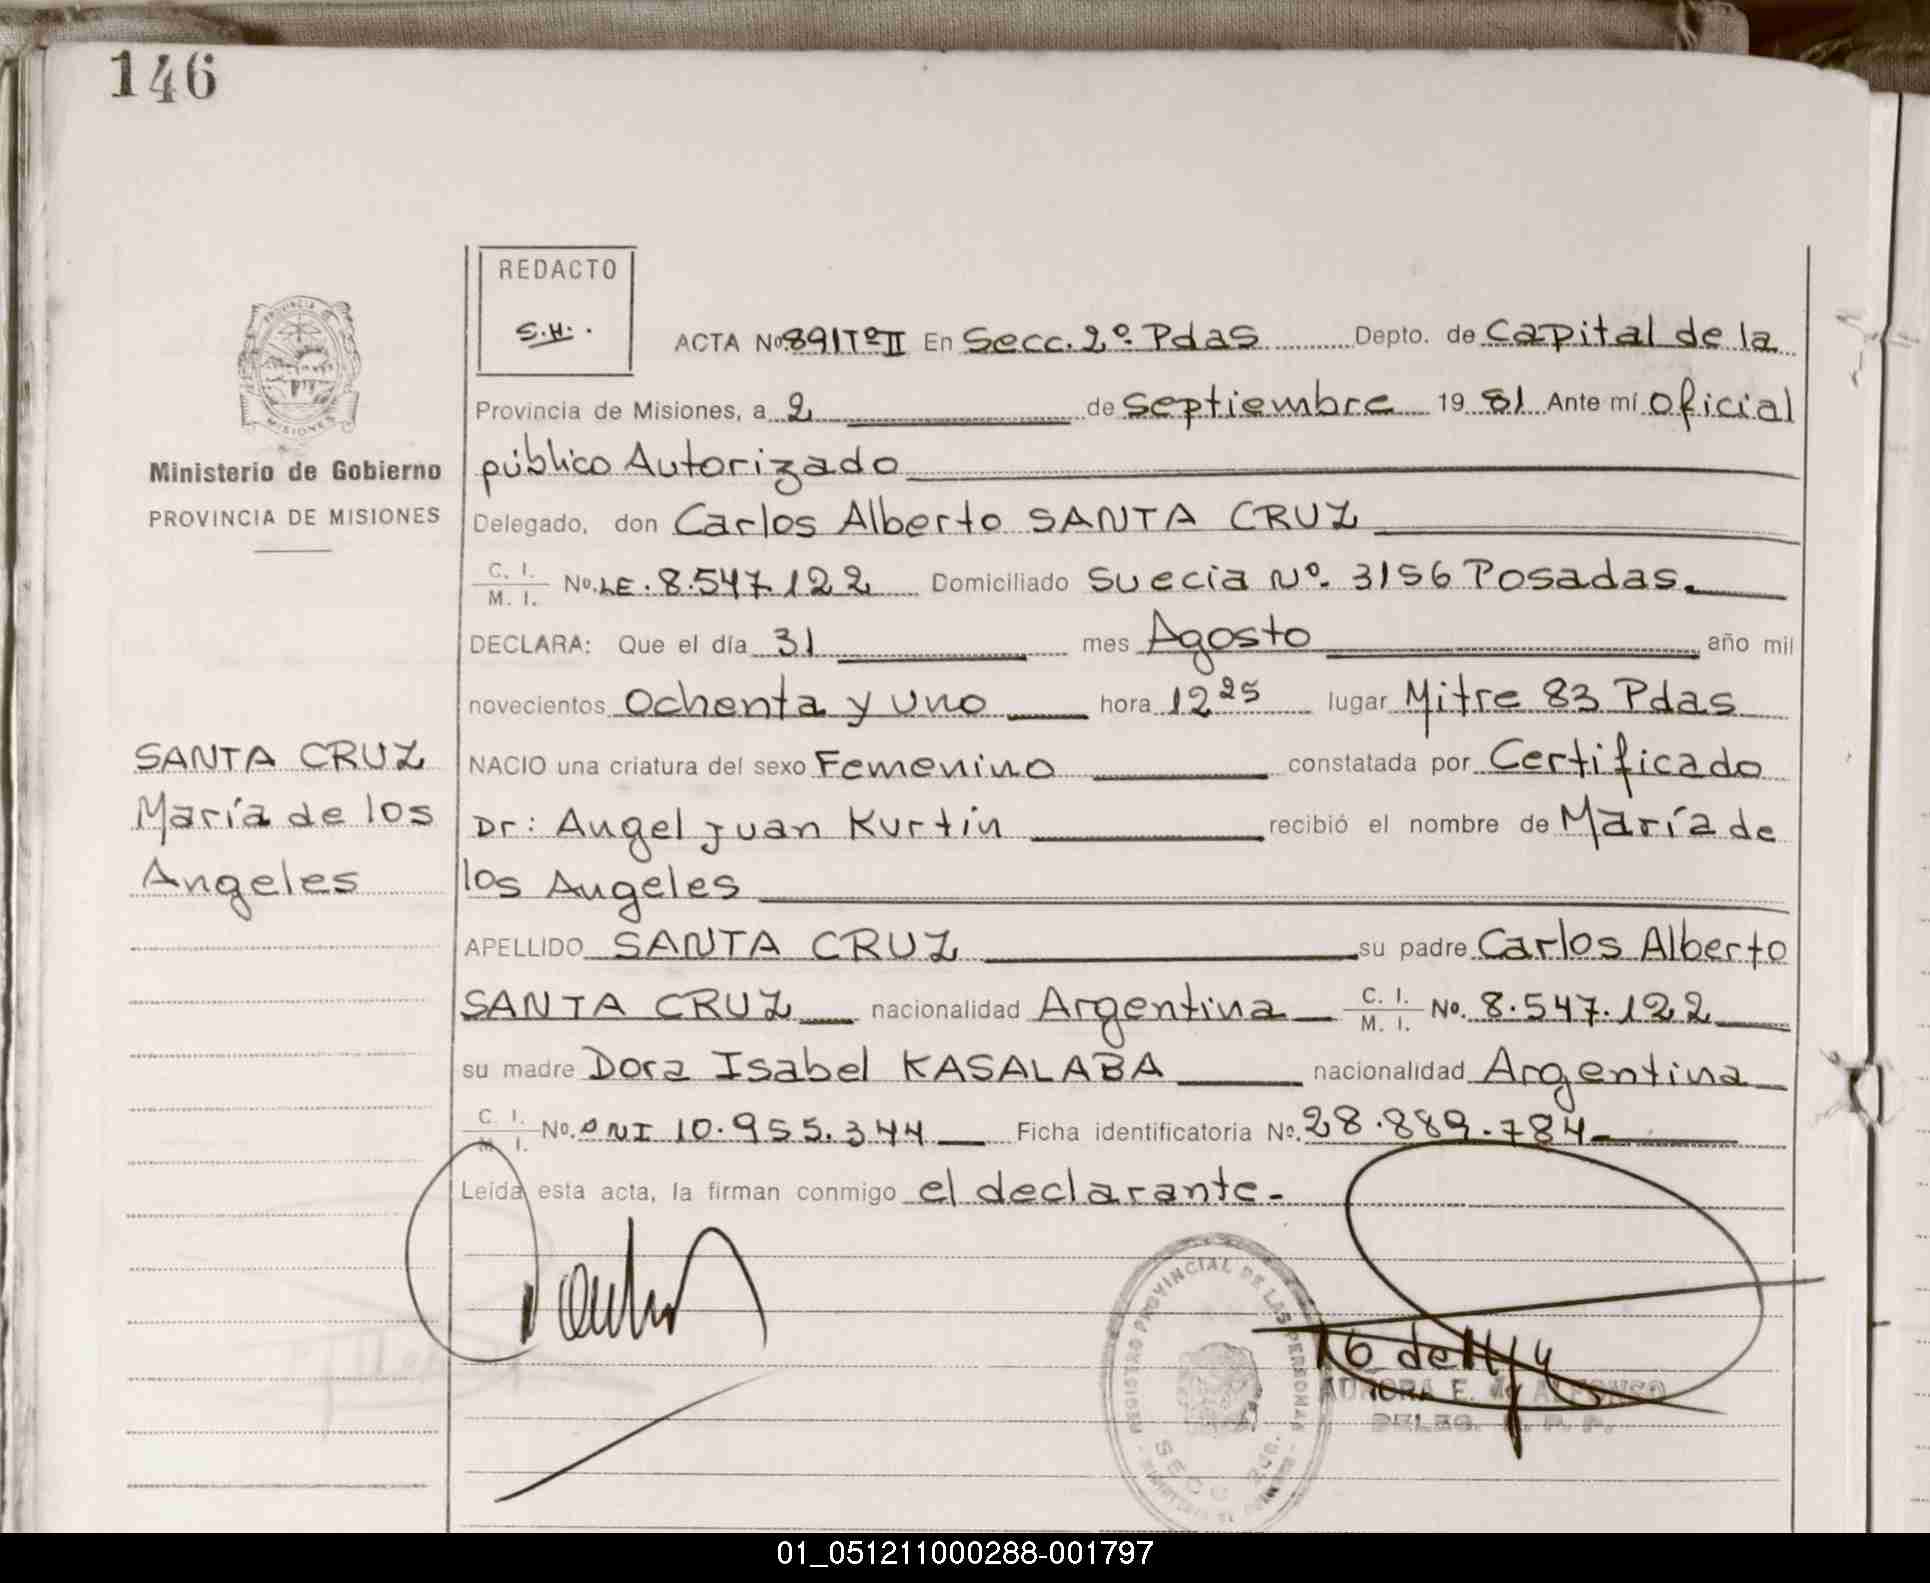 146
REDACTO
S.H.
ACTA Nº 891 Tº II En Secc. 2º Pdas Depto. de Capital de la
Provincia de Misiones, a 2 de Septiembre 1981 Ante mí Oficial
público Autorizado
Ministerio de Gobierno
PROVINCIA DE MISIONES
Delegado, don Carlos Alberto SANTA CRUZ
C. I. M. I. Nº. LE. 8.547.122 Domiciliado Suecia Nº. 3156 Posadas.
DECLARA: Que el día 31 mes Agosto año mil
novecientos Ochenta y uno hora 12 25 lugar Mitre 83 Pdas
SANTA CRUZ
María de los
Angeles
NACIO una criatura del sexo Femenino constatada por Certificado
Dr: Angel Juan Kurtin recibió el nombre de María de
los Angeles
APELLIDO SANTA CRUZ su padre Carlos Alberto
SANTA CRUZ nacionalidad Argentina C. I. M. I. Nº. 8.547.122
su madre Dora Isabel KASALABA nacionalidad Argentina
C. I. M. I. Nº. DNI 10.955.344 Ficha identificatoria Nº. 28.889.784
Leída esta acta, la firman conmigo el declarante.-
REGISTRO PROVINCIAL DE LAS PERSONAS
SECC 2da.
AURORA E. de ALFONSO
DELEG. R. P. P.
01_051211000288-001797